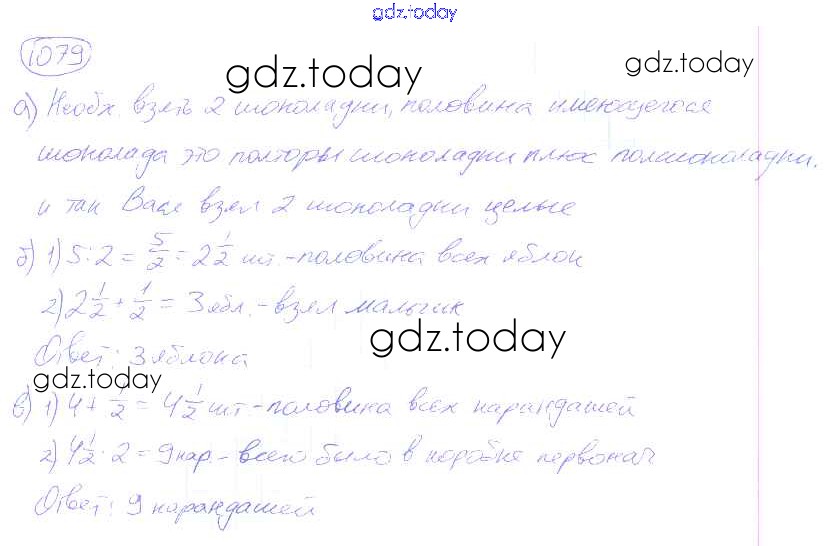 gdz.today
1079
gdz.today
gdz.today
а) Необх. взять 2 шоколадки, половина имеющегося
шоколада это полторы шоколадки плюс полшоколадки.
и так Вася взял 2 шоколадки целые
б) 1) 5:2 = 5/2 = 2 1/2 шт. - половина всех яблок
2) 2 1/2 + 1/2 = 3 ябл. - взял мальчик
gdz.today
Ответ: 3 яблока
gdz.today
в) 1) 4 + 1/2 = 4 1/2 шт - половина всех карандашей
2) 4 1/2 · 2 = 9 кар. - всего было в коробке первонач
Ответ: 9 карандашей